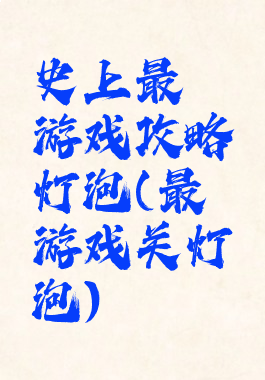 史上最
游戏攻略
灯泡(最
游戏关灯
泡)